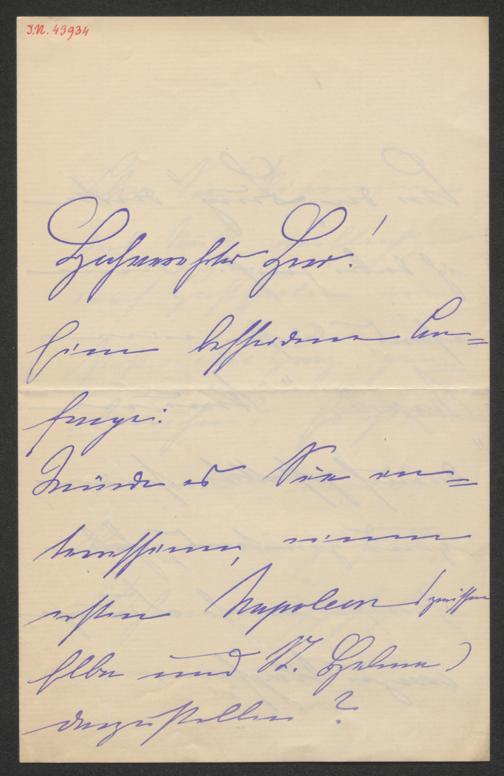 I.N. 49934
Hochverehrter Herr!
Eine bescheidene An=
frage:
Würde es Sie in=
teressieren, einen
ersten Napoleon (zwischen
Elba und St. Helena)
darzustellen?